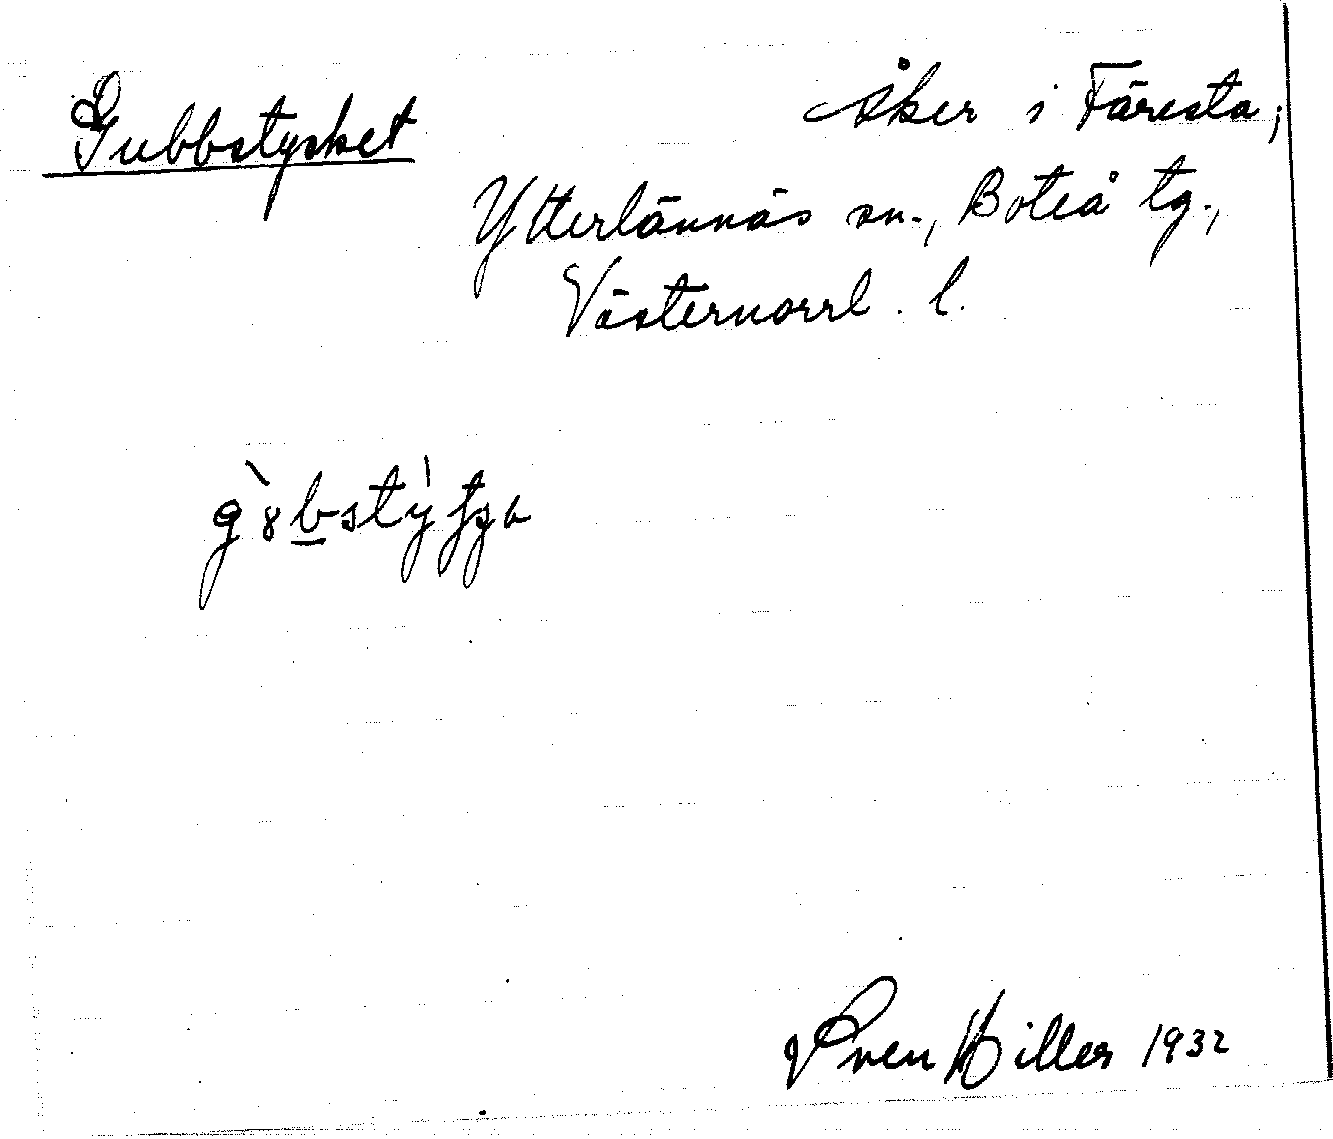 Gubbstycket
Åker i Färesta,
Ytterlännäs sn., Boteå tg.,
Västernorrl. l.
Sven Hiller 1932